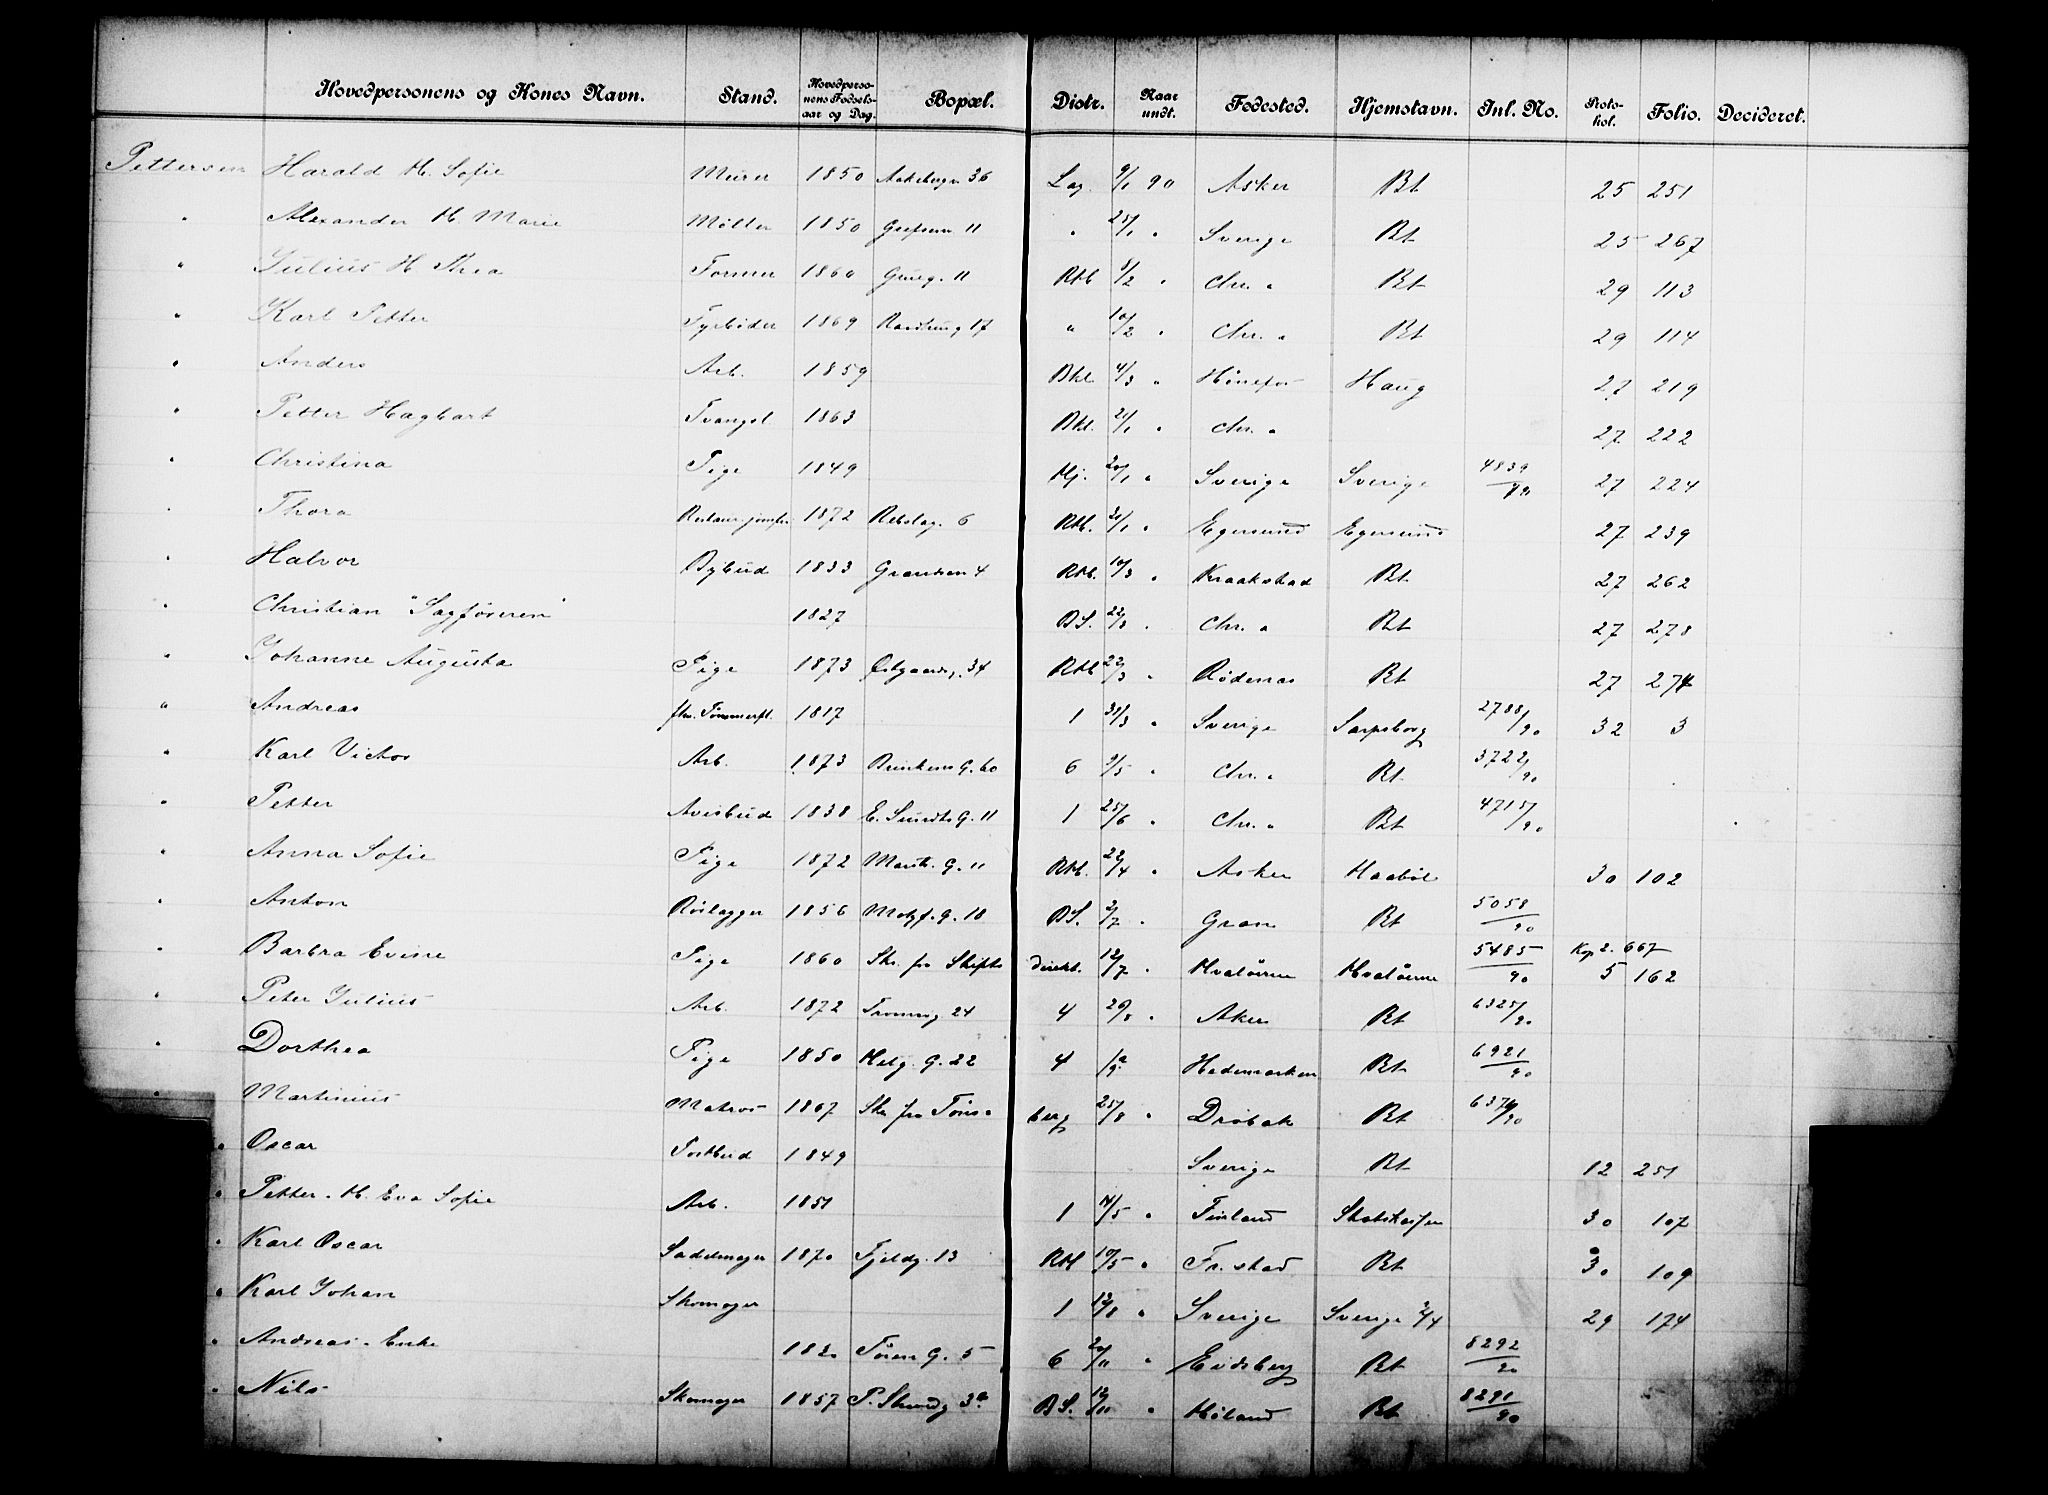 Hovedpersonens og Kones Navn. Stand. Hovedpersonens Fødselsaar og Dag. Bopæl. Distr. Naar undt. Fødested. Hjemstavn. Inl. No. Protokol. Folio. Decideret.
Pettersen Harald H. Sofie Murer 1850 Aakebergv. 36 Lag. 9/1 90 Asker Bt 25 251
" Alexander H. Marie Møller 1850 Grefsenv. 11 " 25/1 " Sverige Bt 25 267
" Julius H. Thea Former 1860 11 Rkl 5/2 " Chr. a Bt 29 113
" Karl Petter Fyrbøder 1869 17 " 10/2 " Chr. a Bt 29 114
" Anders Arb. 1859 Bkl. 4/3 " Hønefos Haug 27 219
" Petter Hagbart Tvangsl. 1863 Bkl. 21/1 " Chr. a 27 222
" Christina Pige 1849 Hj. 20/1 " Sverige Sverige 4839/89 27 224
" Thora 1872 Rebslag. 6 Rkl. 21/1 " Egersund Egersund 27 239
" Halvor Bybud 1833 Grændsen 4 Rkl. 10/3 " Kraakstad Bt 27 262
" Christian "Sagføreren" 1827 B.S. 22/8 " Chr. a Bt 27 278
" Johanne Augusta Pige 1873 Østgaardsg. 34 Rkl 22/3 " Rødenæs Bt 27 274
" Andreas fhv. Tømmerfl. 1817 1 31/3 " Sverige Sarpsborg 2788/90 32 3
" Karl Victor Arb. 1873 Brinkens G. 60 6 9/5 " Chr. a Bt 3722/90
" Petter Avisbud 1838 E. Sundts G. 11 1 25/6 " Chr. a Bt 4715/90
" Anna Sofie Pige 1872 Markv. G. 11 Rkl. 22/4 " Asker Haabøl 30 102
" Anton Rørlægger 1856 Motzf. G. 18 B.S. 2/7 " Gran Bt 5058/90
" Barbra Evine Pige 1860 Skr. fra Skifts direkt. 12/7 " Hvaløerne Hvaløerne 5485/90 Kop 2. 667 5 162
" Peter Julius Arb. 1872 Tromsøg 24 4 20/8 " Aker Bt 6325/90
" Dorthea Pige 1850 Helg. G. 22 4 Hedemarken Bt 6921/90
" Martinius Matros 1867 Skr. fra Tøns= berg 25/8 " Drøbak Bt 6376/90
" Oscar Postbud 1849 Sverige Bt 12 251
" Petter. H. Eva Sofie Arb. 1851 1 4/5 " Finland Statskassen 30 107
" Karl Oscar Sadelmager 1870 Fjeldg. 13 Rkl 10/5 " Fr.stad Bt 30 109
" Karl Johan Skomager 1 12/8 " Sverige Sverige 29 174
" Andreas. Enke 1820 Tøien G. 5 6 20/11 " Eidsberg Bt 8292/90
" Nils Skomager 1857 P. Skundg 3a B.S. 12/11 " Høland Bt 8291/90